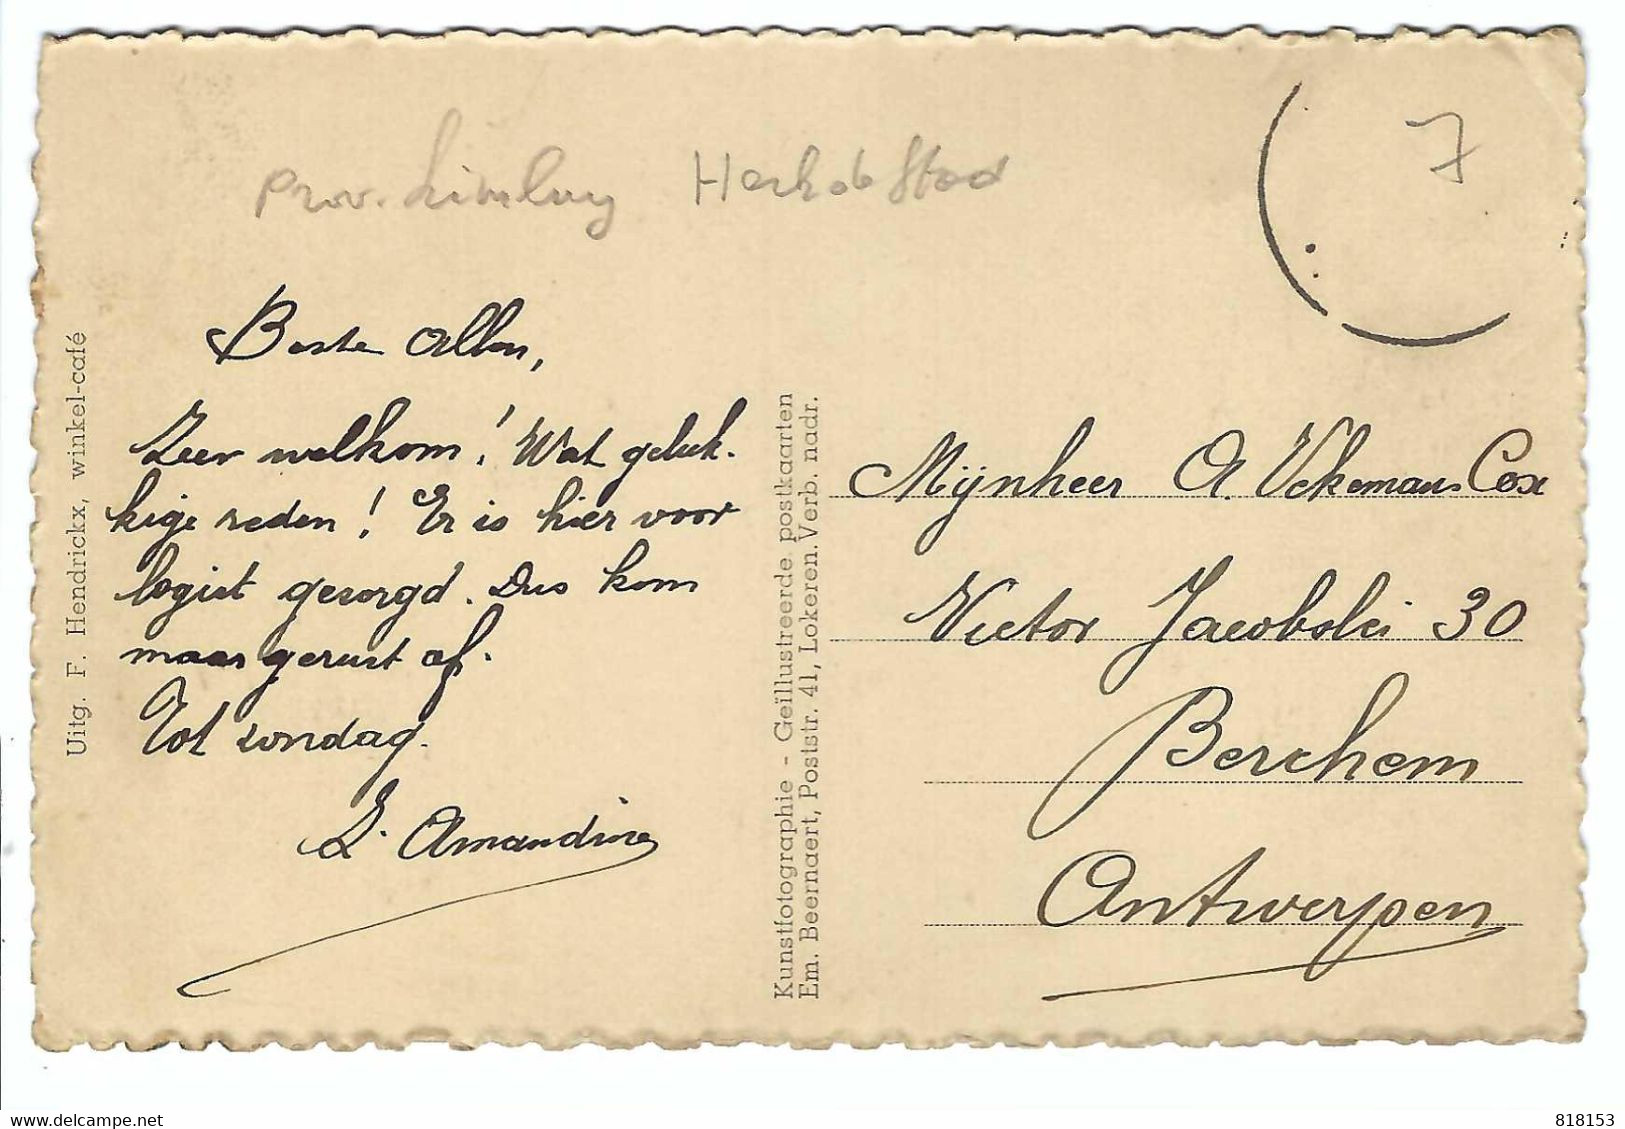 Prov. Limburg Herk de Stad
7
Beste Allen,
Zeer welkom! Wat geluk-
kige reden! Er is hier voor
logist gezorgd. Dus kom
maar gerust af.
Tot zondag.
Z. Amandine
Uitg. F. Hendrickx, winkel-café
Kunstfotographie - Geïllustreerde postkaarten
Em. Beernaert, Poststr. 41, Lokeren. Verb. nadr.
Mijnheer A. Vekemans Cox
Victor Jacobslei 30
Berchem
Antwerpen
delcampe.net
818153